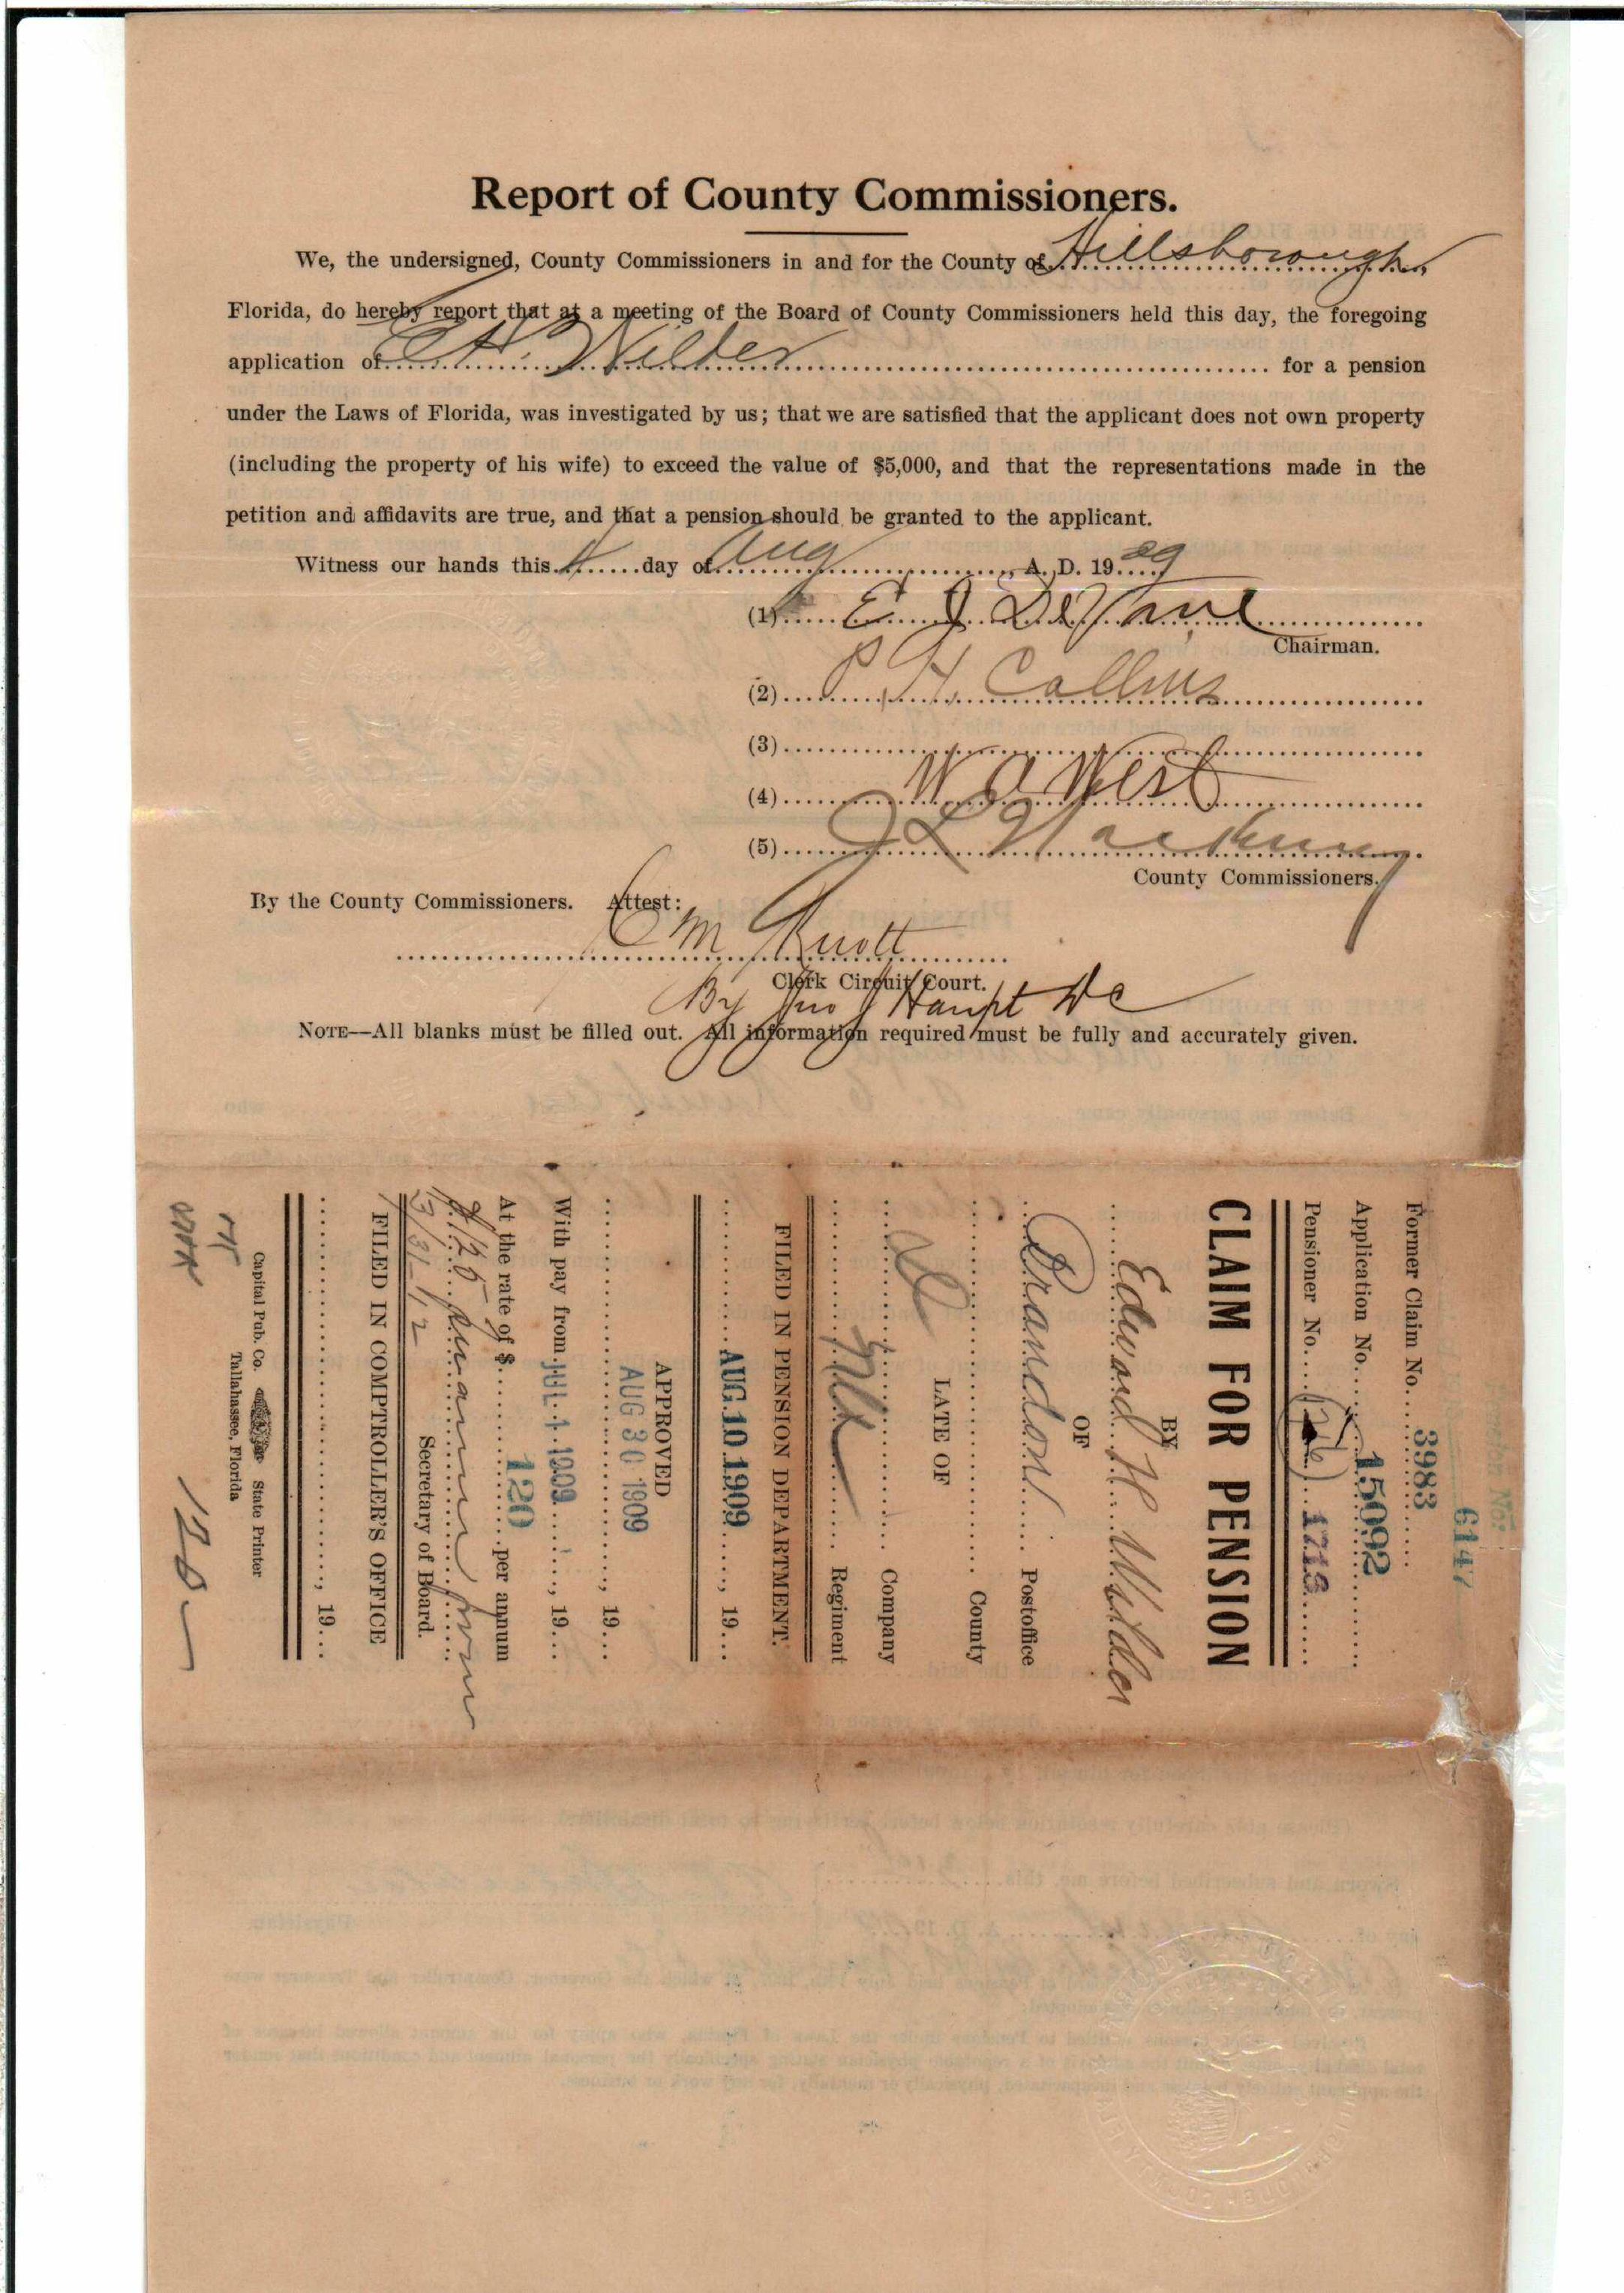 Report of County Commissioners.
We, the undersigned, County Commissioners in and for the County of Hillsborough
Florida, do hereby report that at a meeting of the Board of County Commissioners held this day, the foregoing
application of E H Wilder for a pension
under the Laws of Florida, was investigated by us; that we are satisfied that the applicant does not own property
(including the property of his wife) to exceed the value of $5,000, and that the representations made in the
petition and affidavits are true, and that a pension should be granted to the applicant.
Witness our hands this 4 day of Aug A. D. 1909
(1) E J DeVane
Chairman.
(2) P. H. Collins
(3)
(4) W A West
(5) J L
County Commissioners.
By the County Commissioners. Attest:
C M Knott
Clerk Circuit Court.
By Jno J Haupt DC
NOTE—All blanks must be filled out. All information required must be fully and accurately given.
6147
Former Claim No. 3983
Application No. 15092
Pensioner No. 1713
CLAIM FOR PENSION
BY
Edward H Wilder
OF
Brandon Postoffice
County
LATE OF
Company
Regiment
FILED IN PENSION DEPARTMENT.
AUG 10 1909, 19
APPROVED
AUG 30 1909, 19
With pay from JUL 1 1909, 19
At the rate of $ 120 per annum
$120 per annum from
3/31-12
Secretary of Board.
FILED IN COMPTROLLER'S OFFICE
, 19
Capital Pub. Co. State Printer
Tallahassee, Florida
120